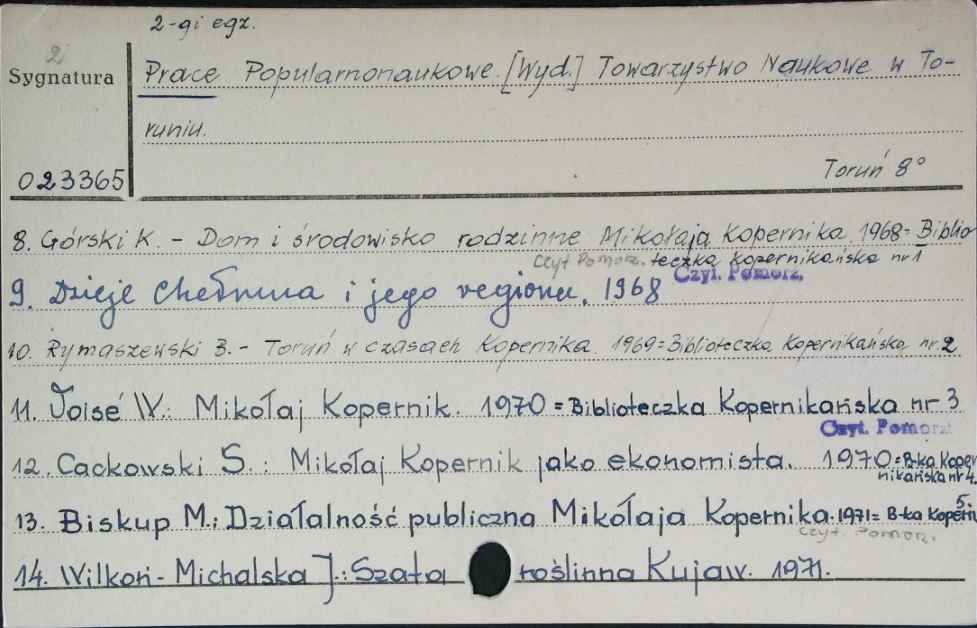 2-gi egz.
2
Sygnatura
Prace Popularnonaukowe. [Wyd.] Towarzystwo Naukowe w To-
runiu.
Toruń 8°
023365
8. Górski K. - Dom i środowisko rodzinne Mikołaja Kopernika 1968= Biblio
Czyt Pomorz. teczka kopernikańska nr 1
Czyt. Pomorz.
9. Dzieje Chełmna i jego regionu. 1968
10. Rymaszewski B. - Toruń w czasach Kopernika. 1969=Biblioteczka Kopernikańska nr. 2
11. Voisé W.: Mikołaj Kopernik. 1970 = Biblioteczka Kopernikańska nr 3
Czyt. Pomorz.
12. Cackowski S.: Mikołaj Kopernik jako ekonomista. 1970=B-ka Koper
nikańska nr 4.
13. Biskup M.: Działalność publiczna Mikołaja Kopernika. 1971= B-ka Kopern
5.
czyt. Pomorz.
14. Wilkoń-Michalska J.: Szata roślinna Kujaw. 1971.